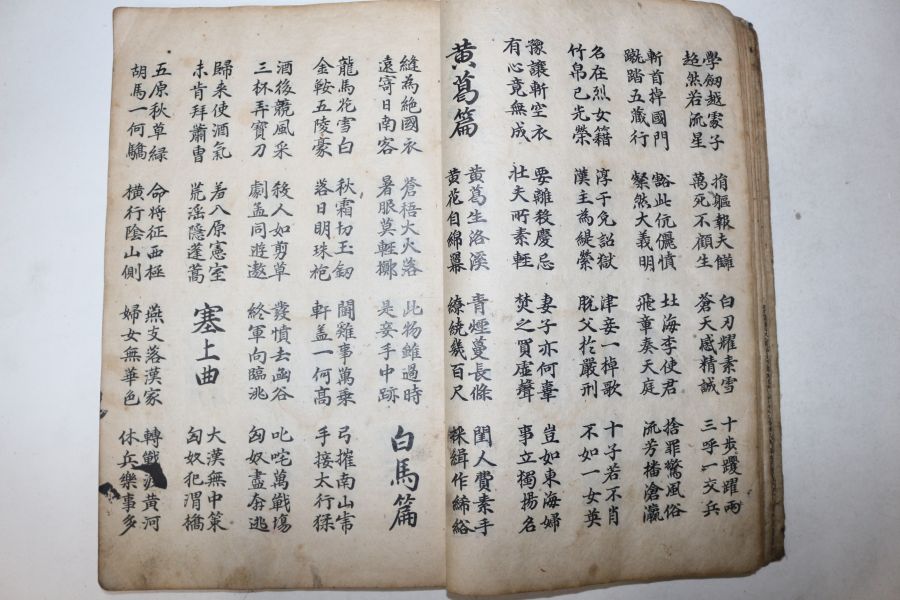 學劔越處子
超然若流星
捐軀報夫讎
萬死不顧生
白刃耀素雪
蒼天感精誠
十步躩躍兩
三呼一交兵
斬首掉國門
蹴踏五藏行
豁此伉儷憤
粲然大義明
北海李使君
飛章奏天庭
捨罪驚風俗
流芳播滄瀛
名在烈女籍
竹帛已光榮
淳于免詔獄
漢主為緹縈
津妾一棹歌
脫父於嚴刑
十子若不肖
不如一女英
豫讓斬空衣
有心竟無成
要離殺慶忌
壯夫所素輕
妻子亦何辜
焚之買虛聲
豈如東海婦
事立獨揚名
黃葛篇
黃葛生洛溪
黃花自綿羃
青煙蔓長條
繚繞幾百尺
閨人費素手
採緝作絺綌
縫為絕國衣
遠寄日南客
蒼梧大火落
暑服莫輕擲
此物雖過時
是妾手中跡
白馬篇
龍馬花雪白
金鞍五陵豪
秋霜切玉劔
落日明珠袍
鬪雞事萬乘
軒盖一何高
弓摧南山
手接太行猱
酒後競風采
三杯弄寶刀
殺人如剪草
劇孟同遊遨
發憤去函谷
終軍向臨洮
叱咤萬戰場
匈奴盡奔逃
歸來使酒氣
未肯拜蕭曹
羞入原憲室
荒淫隱蓬蒿
塞上曲
大漢無中策
匈奴犯渭橋
五原秋草綠
胡馬一何驕
命將征西極
橫行陰山側
燕支落漢家
婦女無華色
轉戰渡黃河
休兵樂事多